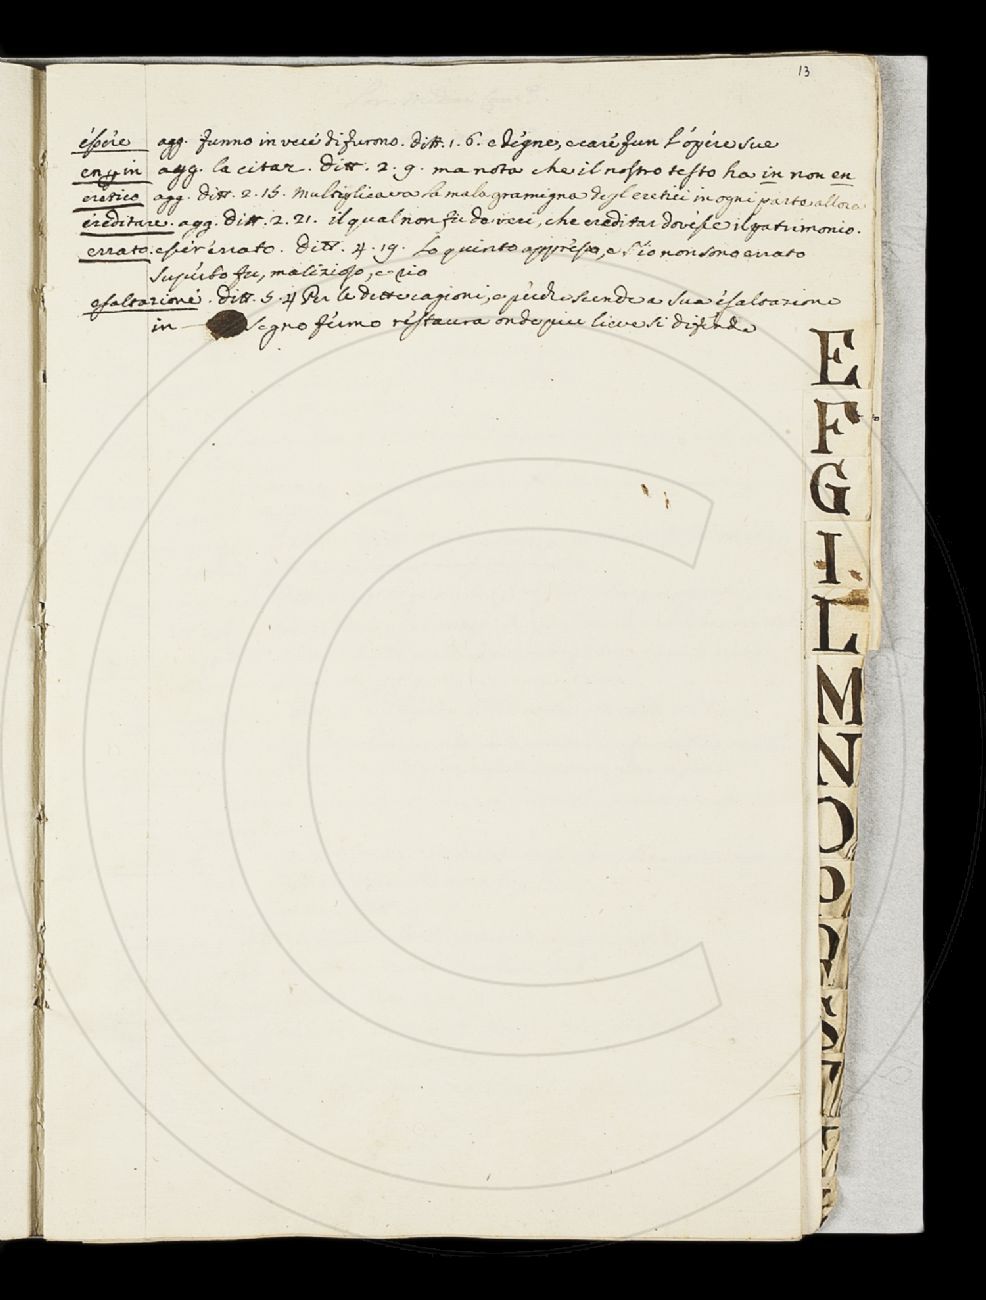 13
essere agg. funno in vece di furono. ditt. 1. 6. e degne, e care fun l'opere sue
en, y in agg. la citaz. ditt. 2. 9. ma nota che il nostro testo ha in non en
eretico agg. ditt. 2. 15. Multiplicava la mala gramigna degl'eretici in ogni parte allora
ereditare. agg. ditt. 2. 21. il qual non fe doveri, che ereditar dovesse il patrimonio.
errato. esser errato. ditt. 4. 19. Lo quinto appresso, e s'io non sono errato
superbo fu, malizioso, e rio
esaltazione. ditt. 5. 4 Per le dette cagioni, e perche scende a sua esaltazione
in segno fermo restaura onde piu lieve si difende
E
F
G
I
L
M
N
O
P
Q
S
T